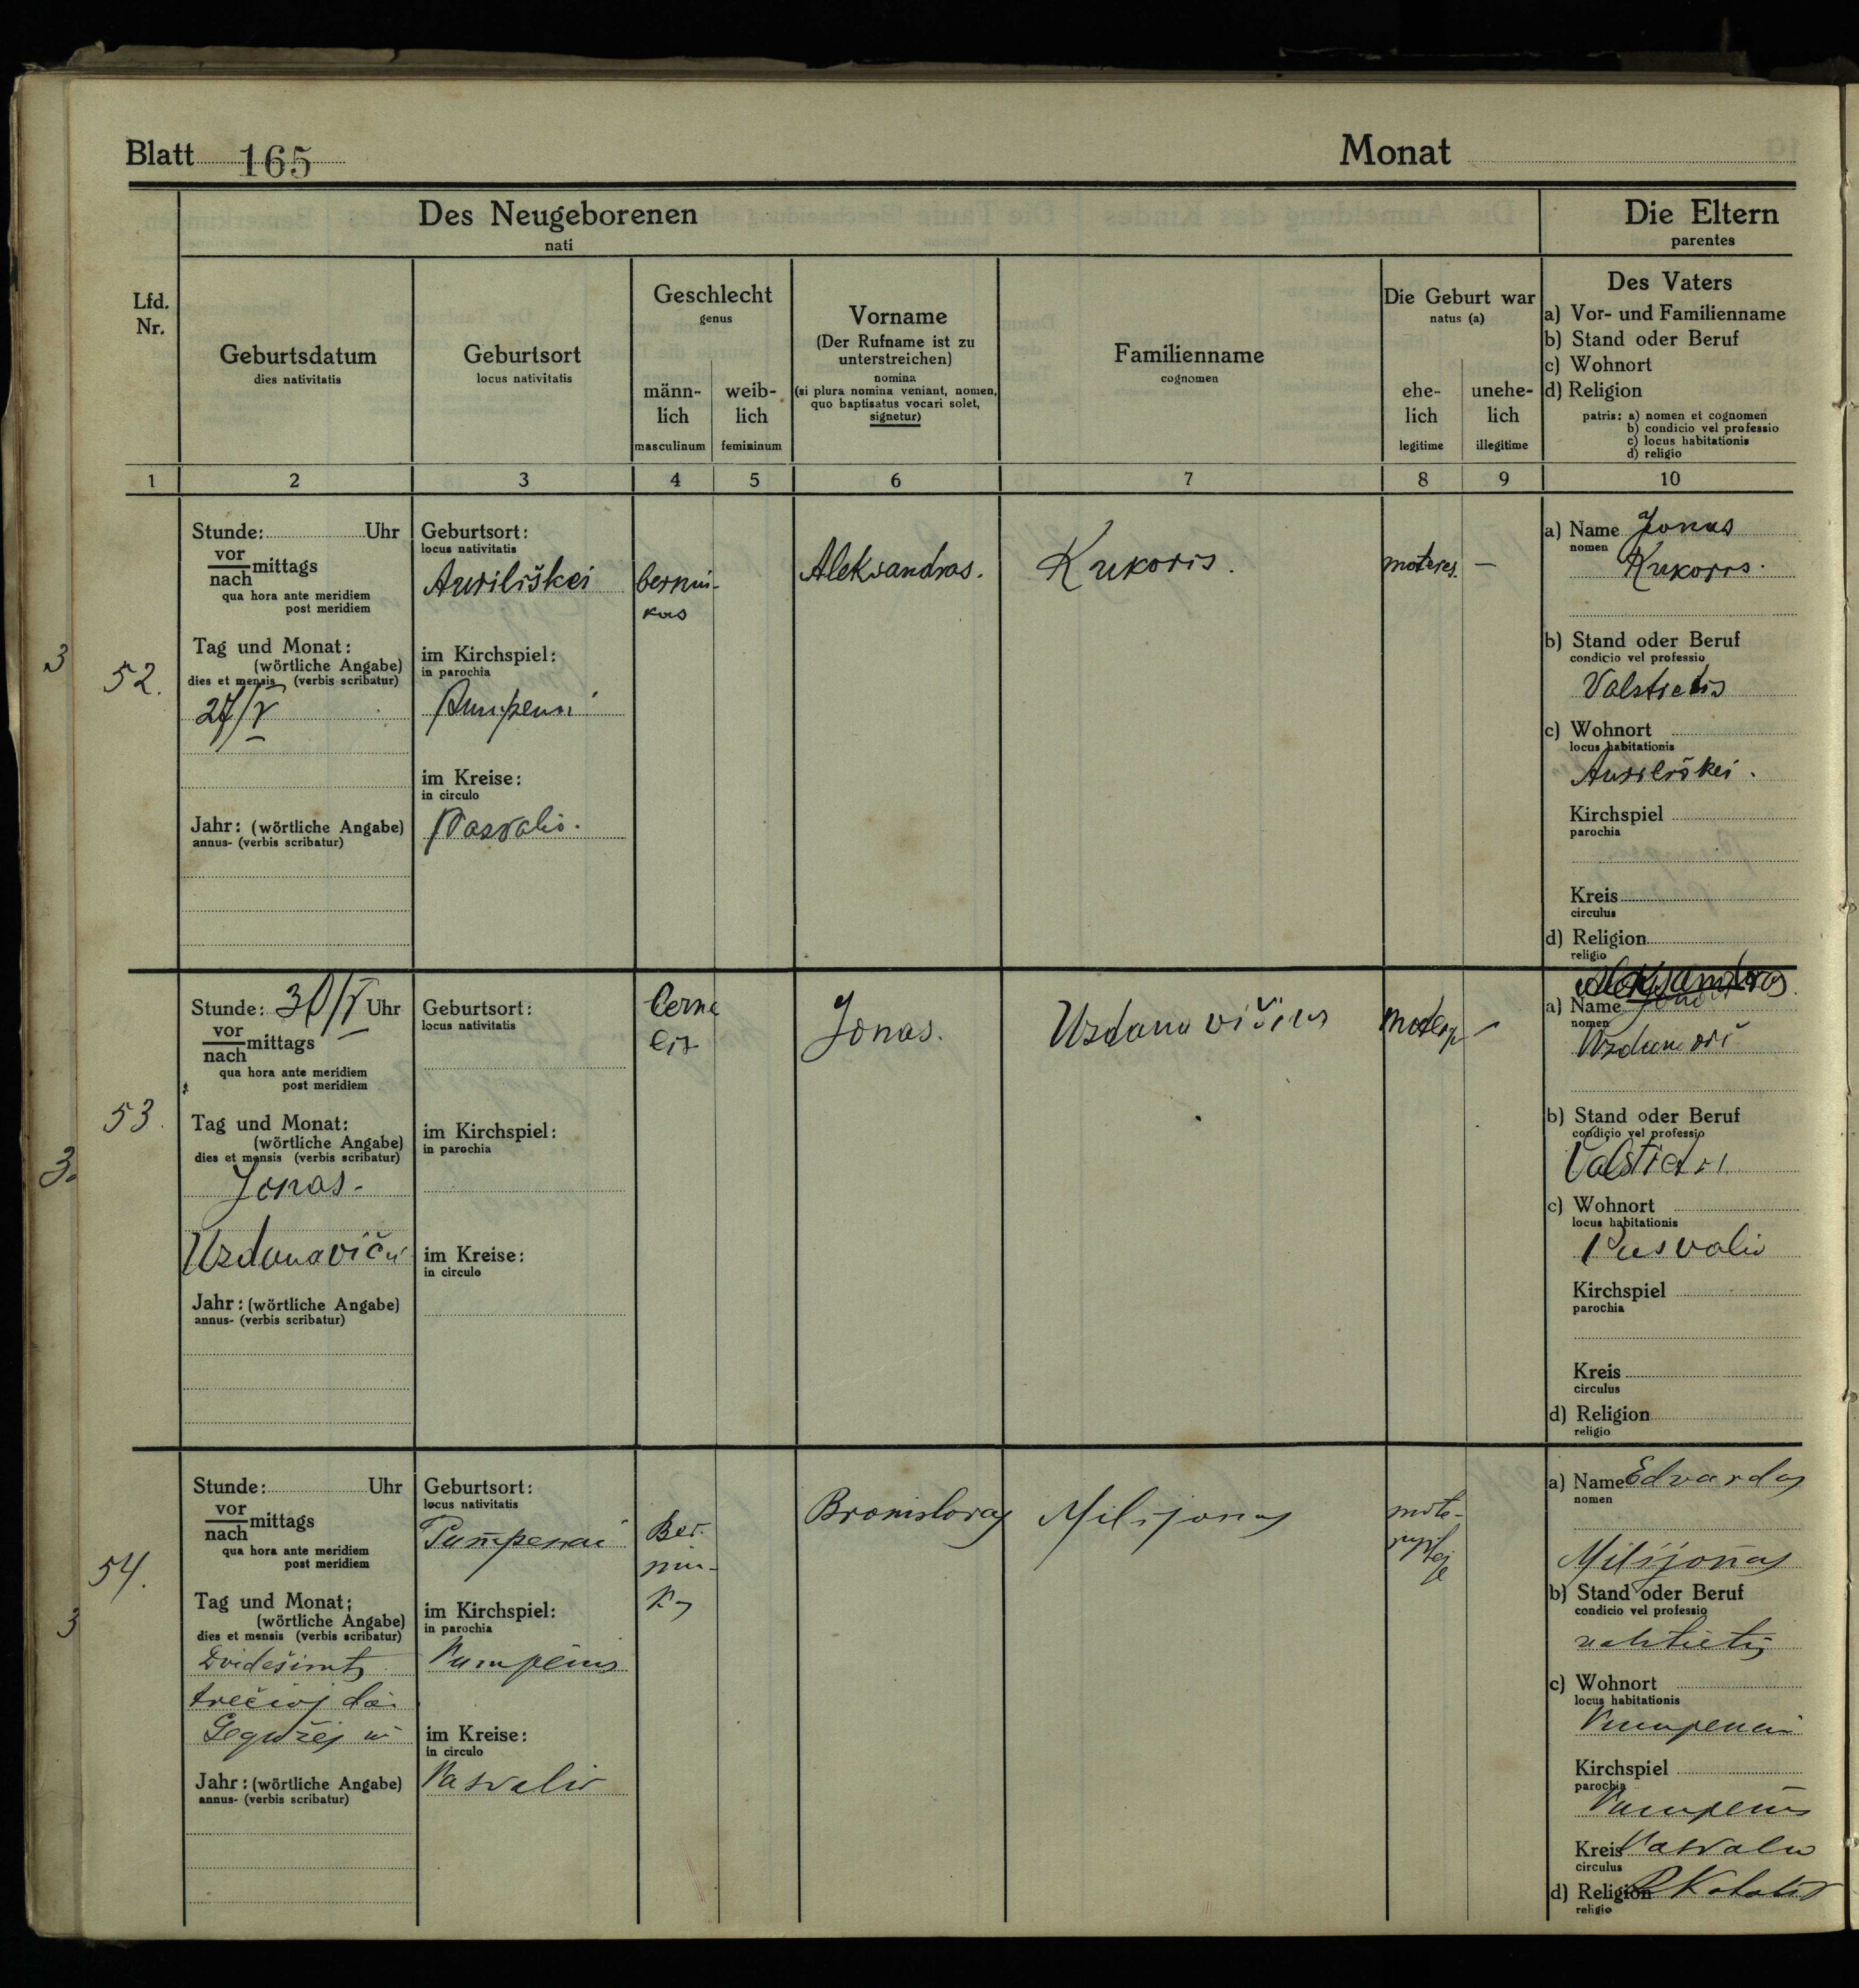 Blatt 165
Monat
Des Neugeborenen
nati
Die Eltern
parentes
Lfd.
Nr.
Geburtsdatum
dies nativitatis
Geburtsort
locus nativitatis
Geschlecht
genus
männ-
lich
masculinum
weib-
lich
femininum
Vorname
(Der Rufname ist zu
unterstreichen)
nomina
(si plura nomina veniant, nomen,
quo baptisatus vocari solet,
signetur)
Familienname
cognomen
Die Geburt war
natus (a)
ehe-
lich
legitime
unehe-
lich
illegitime
Des Vaters
a) Vor- und Familienname
b) Stand oder Beruf
c) Wohnort
d) Religion
patris: a) nomen et cognomen
b) condicio vel professio
c) locus habitationis
d) religio
1 2 3 4 5 6 7 8 9 10
3
52.
Stunde: Uhr
vor
nach mittags
qua hora ante meridiem
post meridiem
Tag und Monat:
(wörtliche Angabe)
dies et mensis (verbis scribatur)
27/V
Jahr: (wörtliche Angabe)
annus- (verbis scribatur)
Geburtsort:
locus nativitatis
Auriliškei
im Kirchspiel:
in parochia
Pumpenai
im Kreise:
in circulo
Pasvalio.
berniu-
kas
Aleksandras.
Kukoris.
moteres. —
a) Name Jonas
nomen
Kukoris.
b) Stand oder Beruf
condicio vel professio
Valstietis
c) Wohnort
locus habitationis
Auriliškei.
Kirchspiel
parochia
Kreis
circulus
d) Religion
religio
53.
3.
Stunde: 30/V Uhr
vor
nach mittags
qua hora ante meridiem
post meridiem
Tag und Monat:
(wörtliche Angabe)
dies et mensis (verbis scribatur)
Jonas.
Uzdanavičiu
Jahr: (wörtliche Angabe)
annus- (verbis scribatur)
Geburtsort:
locus nativitatis
im Kirchspiel:
in parochia
im Kreise:
in circulo
Jonas.
Uzdanavičius
Aleksandras.
a) Name Jonas
nomen
b) Stand oder Beruf
condicio vel professio
Valstieti
c) Wohnort
locus habitationis
Pasvalio
Kirchspiel
parochia
Kreis
circulus
d) Religion
religio
54.
3
Stunde: Uhr
vor
nach mittags
qua hora ante meridiem
post meridiem
Tag und Monat:
(wörtliche Angabe)
dies et mensis (verbis scribatur)
Dvidešimt
trečioj d.
Gegužėj m
Jahr: (wörtliche Angabe)
annus- (verbis scribatur)
Geburtsort:
locus nativitatis
Pumpenai
im Kirchspiel:
in parochia
Pumpėnų
im Kreise:
in circulo
Pasvalio
Ber-
niu-
Bronislovas
Milijonas
mote-
a) Name Edvardas
nomen
Milijonas
b) Stand oder Beruf
condicio vel professio
valstietis
c) Wohnort
locus habitationis
Pumpenai
Kirchspiel
parochia
Pumpėnų
Kreis Pasvalio
circulus
d) Religion R Katalik
religio